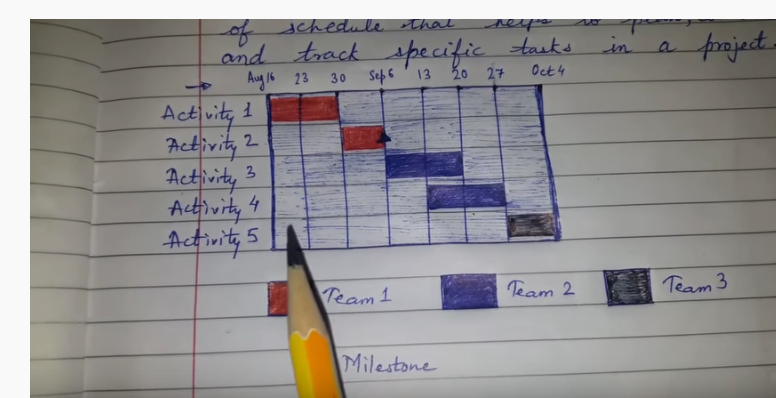 of schedule that helps to
and track specific tasks in a project.
Aug 16 23 30 Sep 6 13 20 27 Oct 4
Activity 1
Activity 2
Activity 3
Activity 4
Activity 5
Team 1 Team 2 Team 3
Milestone